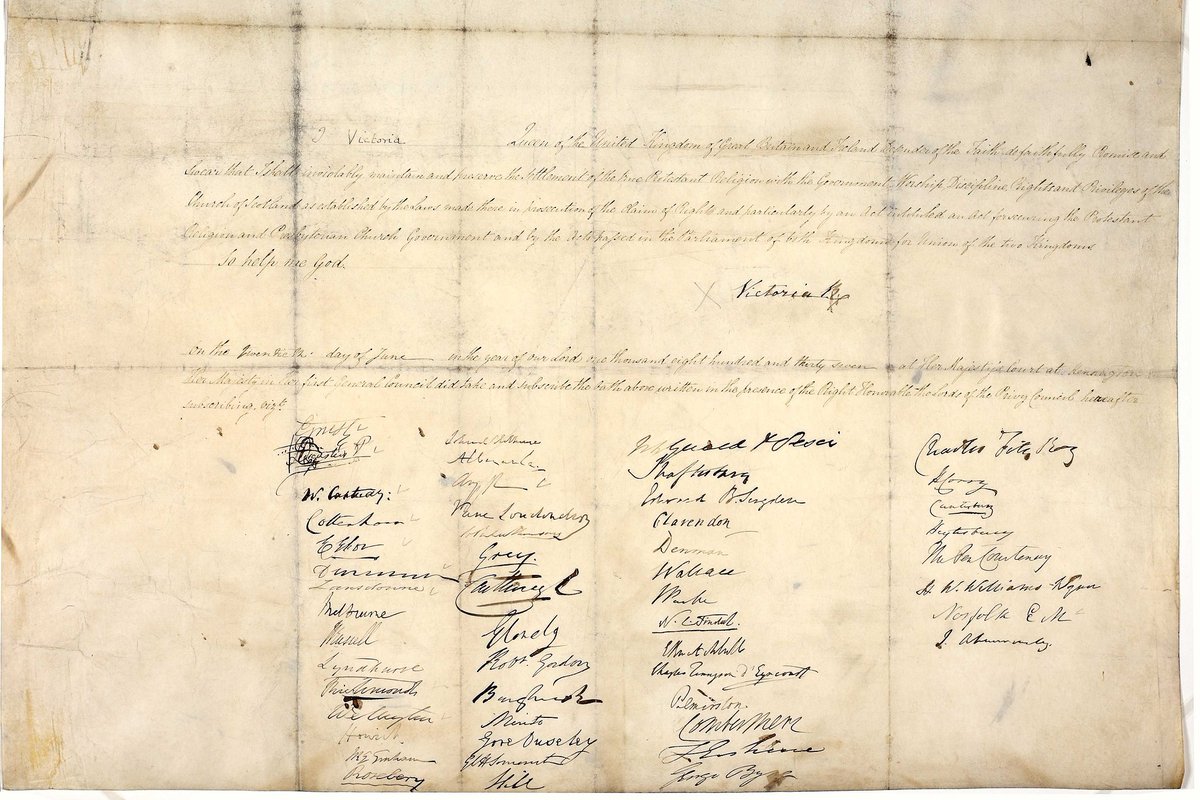 I Victoria Queen of the United Kingdom of Great Britain and Ireland Defender of the Faith do faithfully Promise and
Swear that I shall inviolably maintain and preserve the Settlement of the true Protestant Religion with the Government, Worship Discipline Rights and Privileges of the
Church of Scotland as established by the laws made there in prosecution of the Claim of Rights and particularly by an Act intituled an Act for securing the Protestant
Religion and Presbyterian Church Government and by the Acts passed in the Parliament of both Kingdoms for Union of the two Kingdoms
So help me God.
Victoria R
On the Twentieth day of June in the year of our Lord one thousand eight hundred and thirty seven at Her Majesty's Court at Kensington
Her Majesty in her first General Council did take and subscribe the Oath above written in the presence of the Right Honorable the Lords of the Privy Council hereafter
subscribing, vizt.
Ernest
Augustus F
W. Cantuar:
Cottenham
E Ebor
Lansdowne
Melbourne
Russell
Lyndhurst
Richmond
Wellington
Rosebery
Albemarle
Vane Londonderry
Grey
Glenelg
Robt Gordon
Minto
Gore Ouseley
Hill
Shaftesbury
Edward B. Sugden
Clarendon
Denman
Wallace
N. C. Tindal.
Charles Tennyson d'Eyncourt
Palmerston.
Combermere
T Erskine
George Byng
Charles Fitz Roy
H Corry
Canterbury
Heytesbury
Thos Per Courtenay
H. W. Williams Wynn
Norfolk E M
J. Abercromby